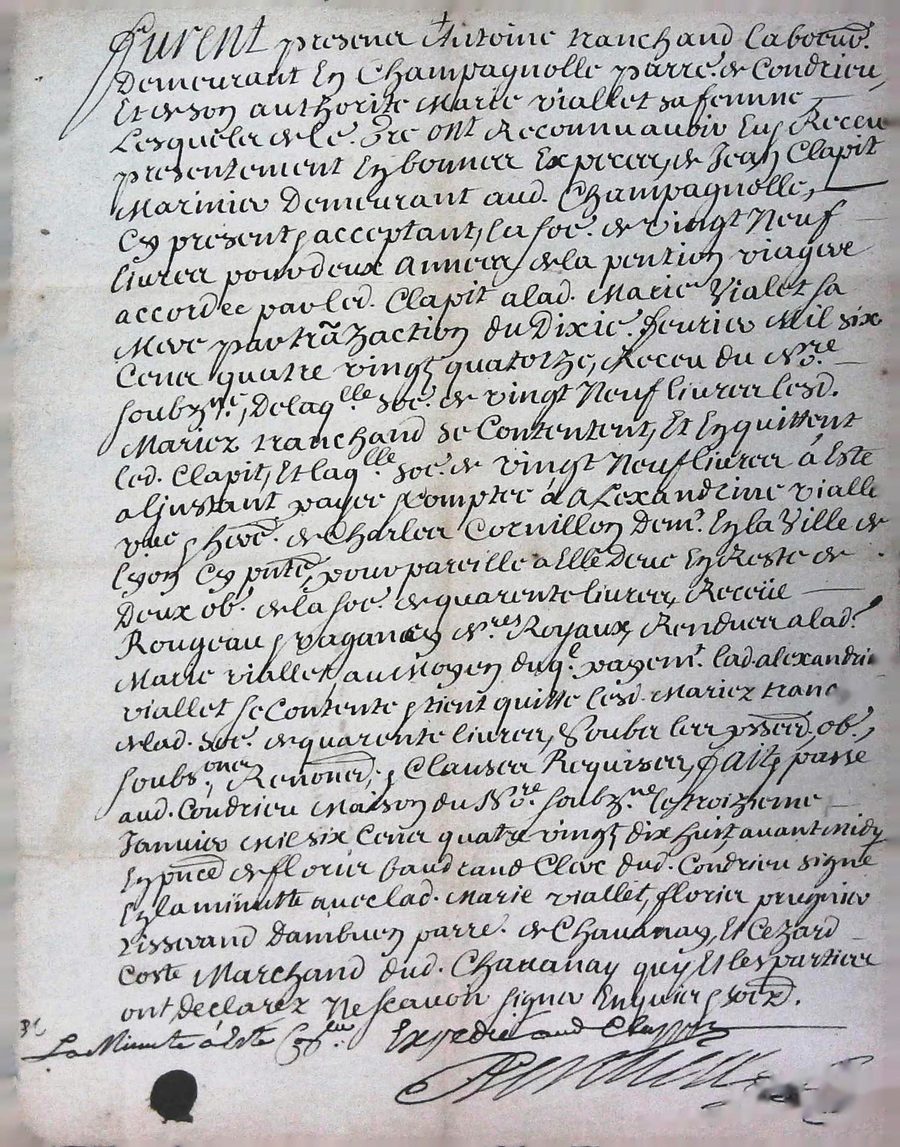 furent presener Antoine tranchand Laboeur.
Demeurant En Champagnolle parre. de Condrieu,
Et de son authorite Marie viallet sa femme
Lesqueler de le. gré ont Reconnu avoir Eu, Receu
presentement En bonner Experer, de Jean Clapit
Marinier Demeurant aud. Champagnolle,
Cy present, acceptant, La soe. de vingt Neuf
livrer pour deux Anneer, de la pention viagere
accordee par led. Clapit a lad. Marie Vialet sa
Mere par trãzaction du Dixie. fevrier Mil six
Cener quatre vingt quatorze, Receu du Nore.
soubzne., De laqlle soe. de vingt Neuf livrer lesd.
Mariez tranchand se Contentent, Et En quittent
led. Clapit, Et laqlle soe. de vingt Neuf livrer à Esté
a Linstant payee Comptee à Alexandrine vialle
vve, here. de Charler Cornillon demt. En la Ville de
Lyon Cy pnte, pour pareille a Elle Deue En Reste de
Deux ob. de la soe. de quarente livrer, Receüe
Rougeau, pagance, Nres Royaux, Renduer a lad.
Marie viallet, au Moyen duqe. payemt. lad. alexandri
viallet se Contente, tient quitte lesd. Mariez tranc
de lad. soe. de quarente livrer, Soubz ler pssed. ob.,
soubs.oner, Renoned., Clauser Requiser, fait, passé
aud. Condrieu Maison du Nore. soubzne. le troizieme
Janvier Mil six Cener quatre vingt dix huit, avant midy
En pnce de florier baudrand Clerc dud. Condrieu signé
En la minutte avec lad. Marie viallet, florier prugnier
tisserand Dambuen parre. de Chavanay, Et Cezard
Coste Marchand dud. Chavanay quy Et les partier
ont declarez Ne scavoir signer Enquier, soixd.
La Minutte a Esté Coollee Expedié aud Clapit